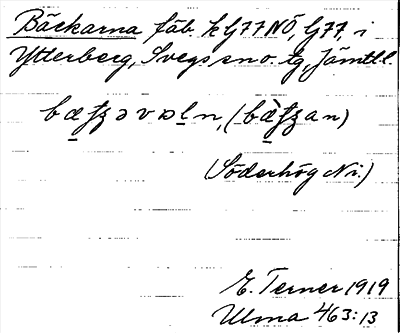 Bäckarna fäb. k G77NÖ, G77, i
Ytterberg, Svegs sn o. tg, Jämtl.l.
(Söderhög Nr.)
E. Terner 1919
Ulma 463:13